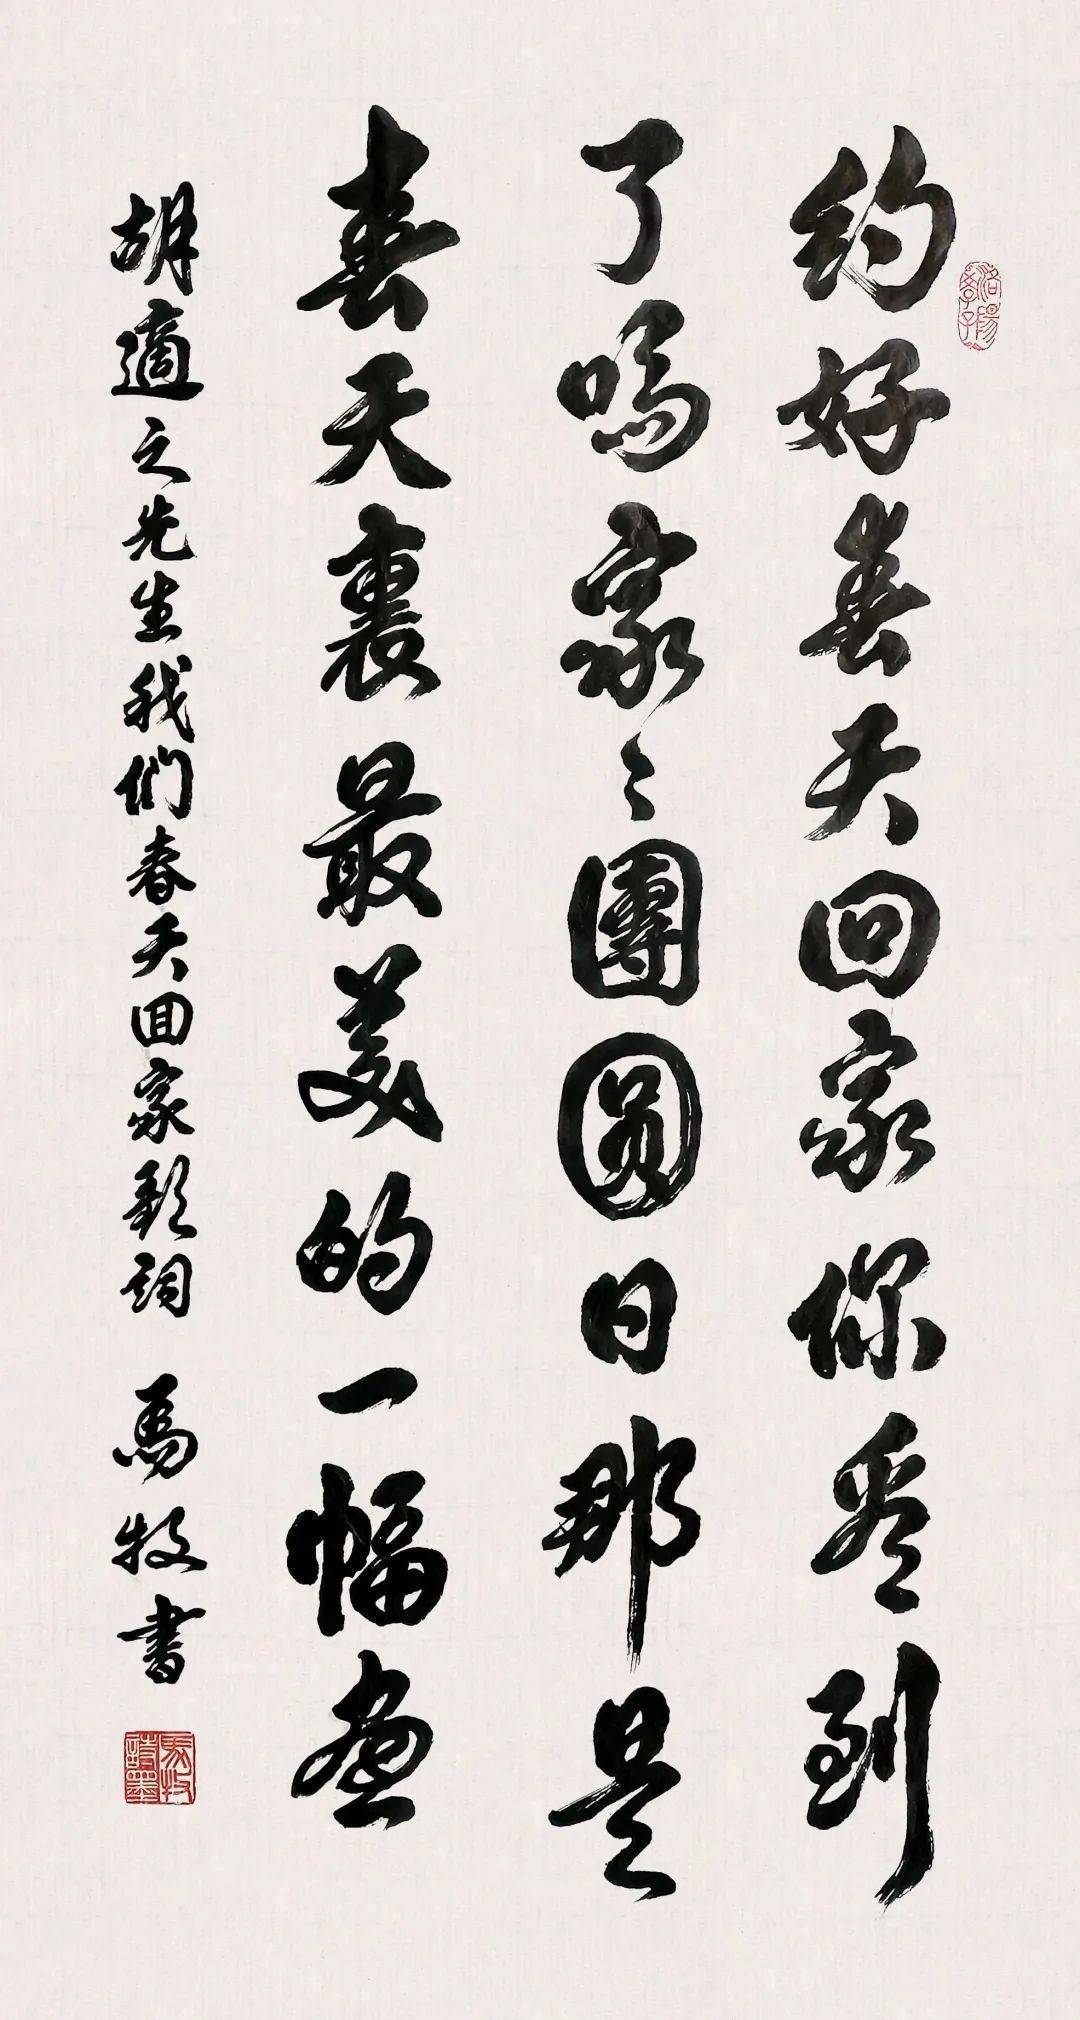 约好春天回家你看到
了吗家々團圓日那是
春天裏最美的一幅画
胡適之先生我们春天回家歌詞 馬牧書
洛陽
馬牧